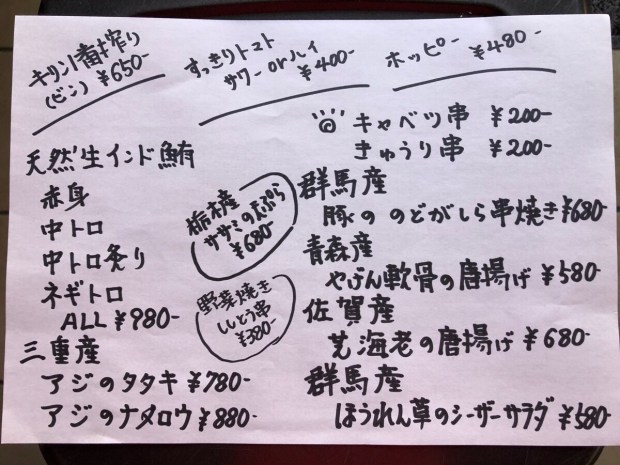 キリン1番搾り
(ビン) ¥650-
すっきりトマト
サワー orハイ
¥400-
ホッピー
¥480-
キャベツ串 ¥200-
きゅうり串 ¥200-
天然生インド鮪
赤身
中トロ
中トロ炙り
ネギトロ
ALL ¥980-
三重産
アジのタタキ ¥780-
アジのナメロウ ¥880-
栃木産
ササミの天ぷら
¥680-
野菜焼き
ししとう串
¥380-
群馬産
豚の のどがしら串焼き ¥680-
青森産
やげん軟骨の唐揚げ ¥580-
佐賀産
芝海老の唐揚げ ¥680-
群馬産
ほうれん草のシーザーサラダ ¥580-